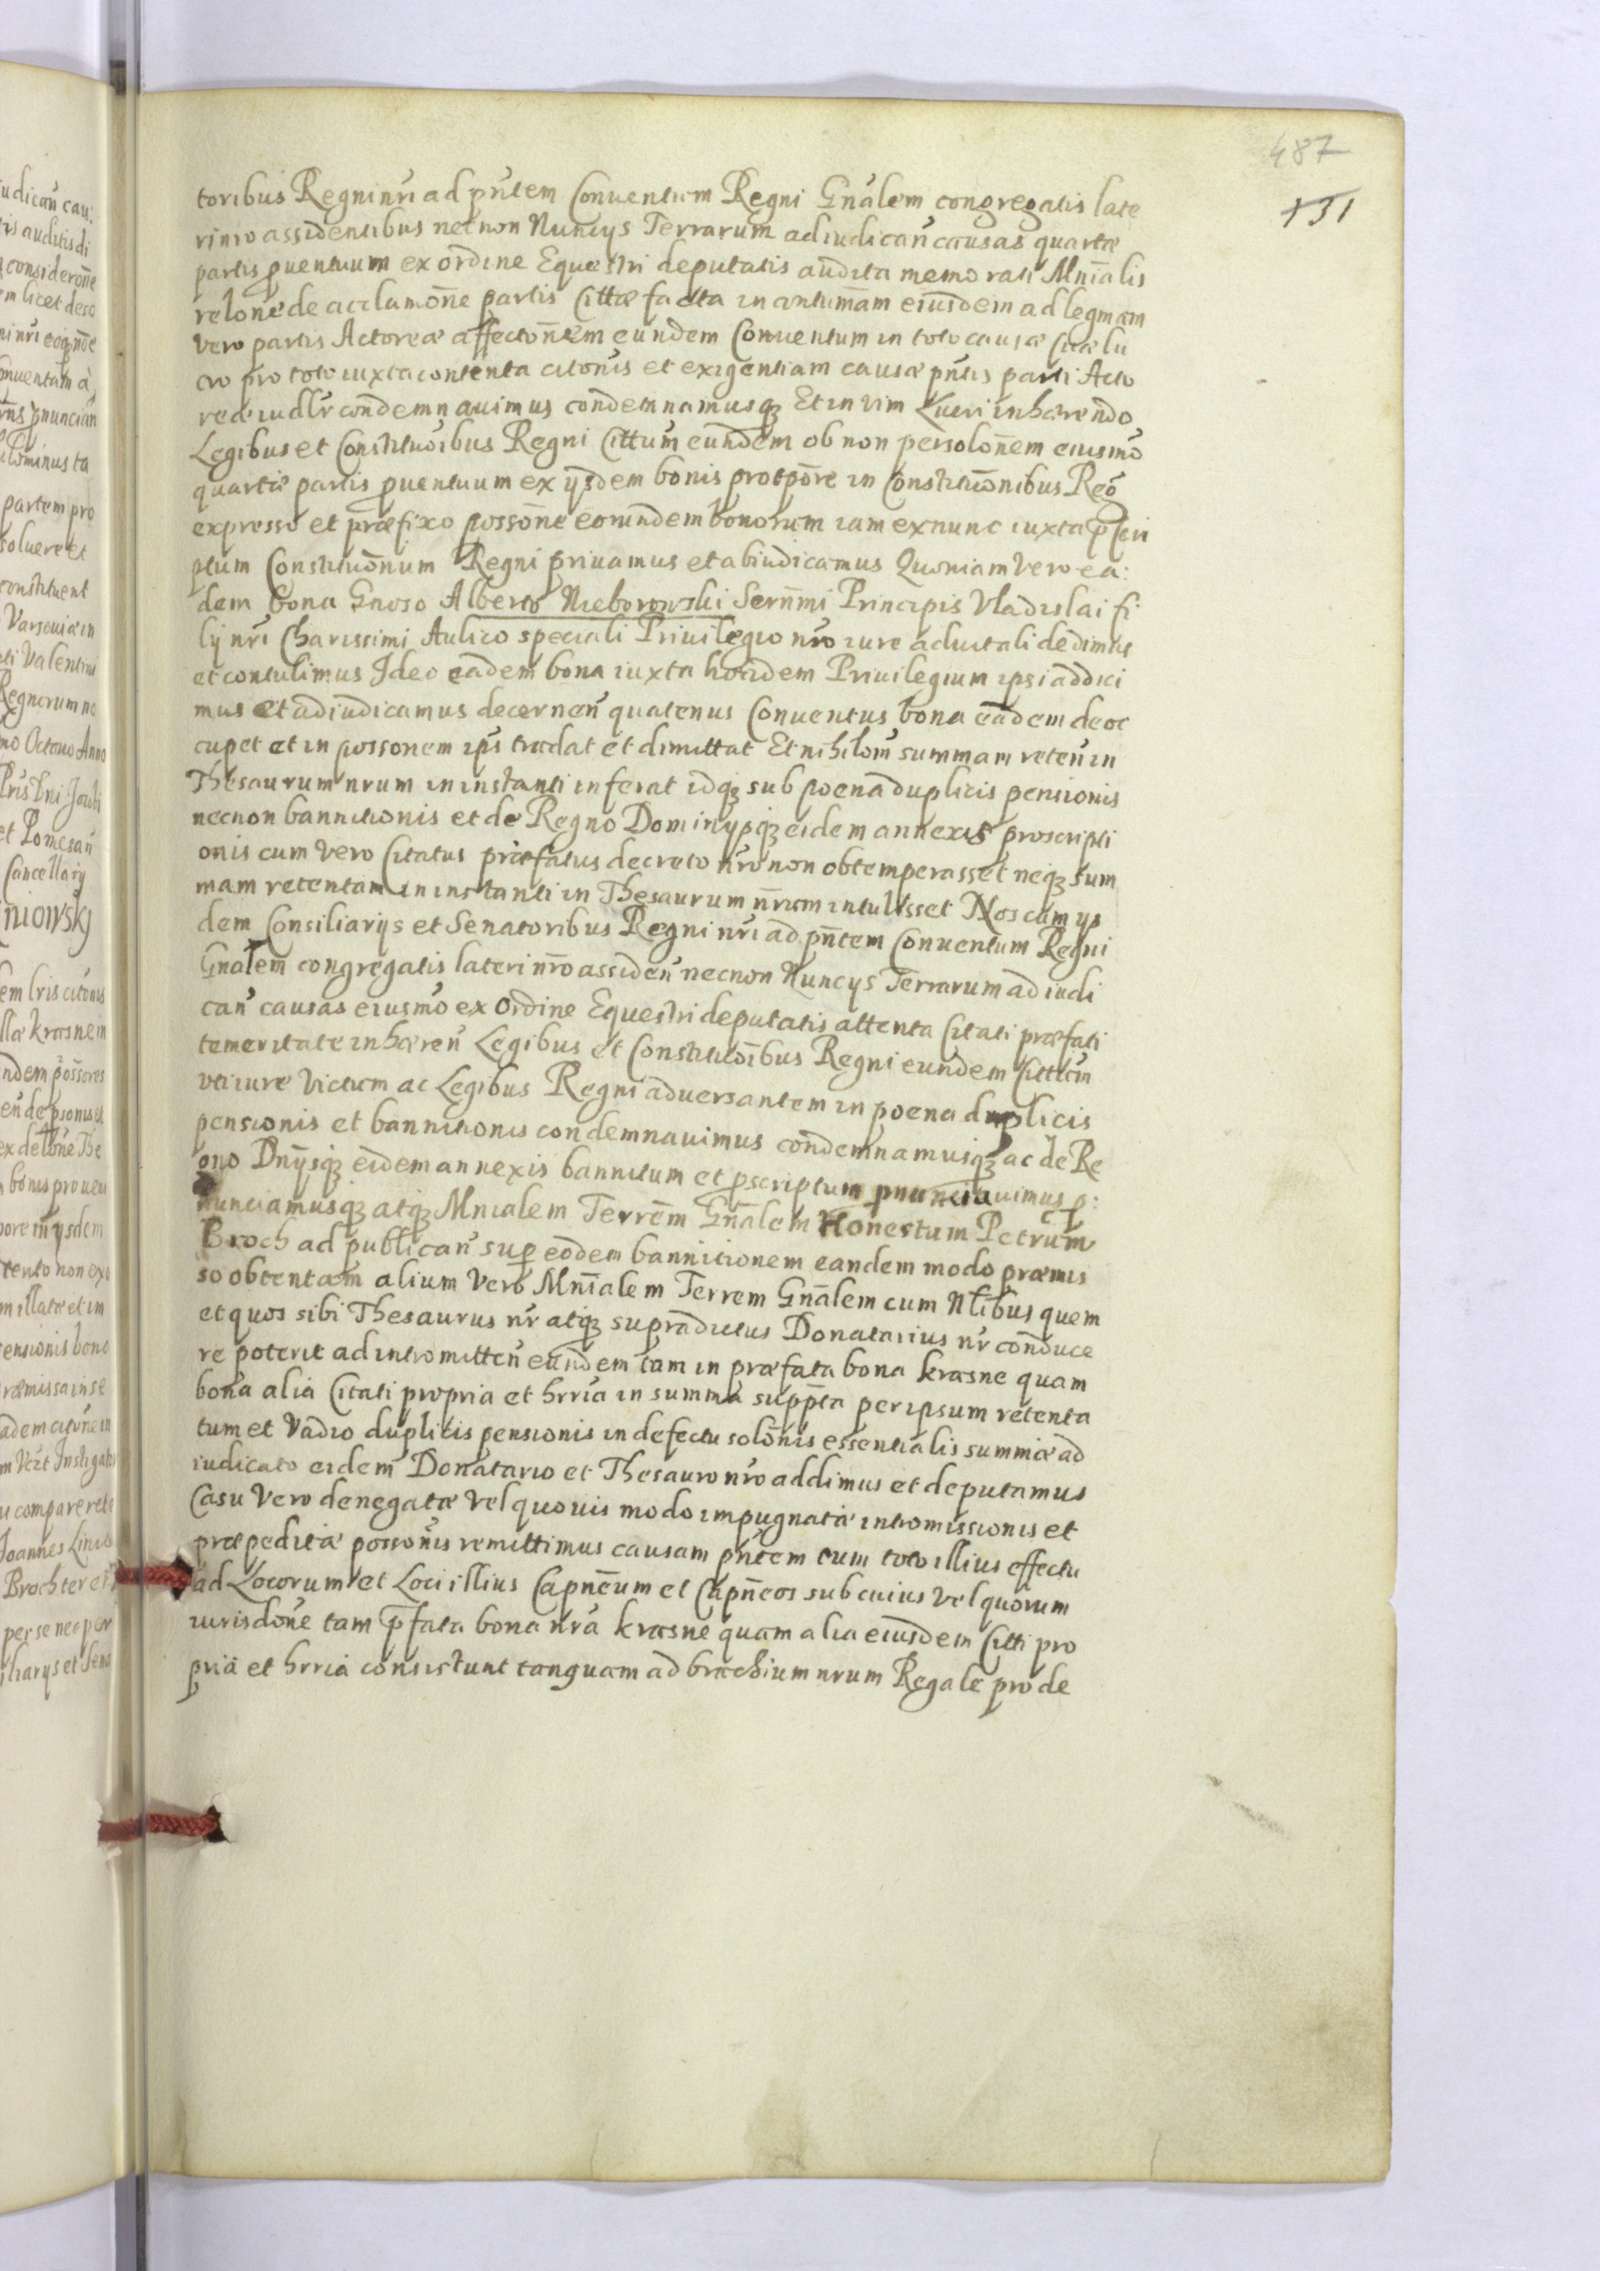 487
131
toribus Regni nri ad pntem Conuentum Regni Gnalem congregatis late
ri nro assidentibus necnon Nuncys Terrarum ad iudican causas quartæ
partis prouentuum ex ordine Equestri deputatis audita memorati Mnialis
relone de acclamone partis Cittæ facta in contumam eiusdem ad legmam
vero partis Actoreæ affectonem eundem Conuentum in toto causæ suæ lu
cro pro toto iuxta contenta citonis et exigentiam causæ pntis parti Acto
reæ iudlr condemnauimus condemnamusq; Et in vim Lucri inhærendo
Legibus et Constitutoibus Regni Cittum eundem ob non persolonem eiusmo
quartæ partis prouentuum ex ysdem bonis pro tpore in Constitutionibus Reg
expresso et præfixo possone eorundem bonorum iam ex nunc iuxta pscri
ptum Constitutonum Regni priuamus et abiudicamus Quoniam vero ea:
dem bona Gnoso Alberto Nieborowski Sernmi Principis Vladislai fi
lij nri Charissimi Aulico speciali Priuilegio nro iure aduitali dedimus
et contulimus Ideo eadem bona iuxta hocidem Priuilegium ipsi addici
mus et adiudicamus decernen quatenus Conuentus bona eadem de oc
cupet et in possonem ipsi tradat et dimittat Et nihilom summam reten in
Thesaurum nrum in instanti inferat idq; sub poena duplicis pensionis
necnon bannitionis et de Regno Dominysq; eidem annexis proscripti
onis cum vero Citatus præfatus decreto nro non obtemperasset neq; sum
mam retentam in instanti in Thesaurum nrum intulisset Nos cum ys
dem Consiliarijs et Senatoribus Regni nri ad pntem Conuentum Regni
Gnalem congregatis lateri nro assiden necnon Nuncys Terrarum ad iudi
can causas eiusmo ex Ordine Equestri deputatis attenta Citati præfati
temeritate inhæren Legibus et Constitutoibus Regni eundem Cittum
vti iure victum ac Legibus Regni aduersantem in poena duplicis
pensionis et bannitionis condemnauimus condemnamusq; ac de Re
gno Dnysq; eidem annexis bannitum et pscriptum pnunciauimus p:
nunciamusq; atq; Mnialem Terrem Gnalem Honestum Petrum
Broch ad publican super eodem bannitionem eandem modo præmis
so obtentam alium vero Mnialem Terrem Gnalem cum Nlibus quem
et quos sibi Thesaurus nr atq; supradictus Donatarius nr conduce
re poterit ad intromitten eundem tam in præfata bona Krasne quam
bona alia Citati propria et hrria in summa suppta per ipsum retenta
tum et vadio duplicis pensionis in defectu solonis essentialis summæ ad
iudicato eidem Donatario et Thesauro nro addimus et deputamus
Casu vero denegatæ vel quouis modo impugnatæ intromissionis et
præpeditæ possonis remittimus causam pntem cum toto illius effectu
ad Locorum et Loci illius Capneum et Capneos sub cuius vel quorum
iurisdone tam pfata bona nra Krasne quam alia eiusdem Citti pro
pria et hrria consistunt tanquam ad brachium nrum Regale pro de